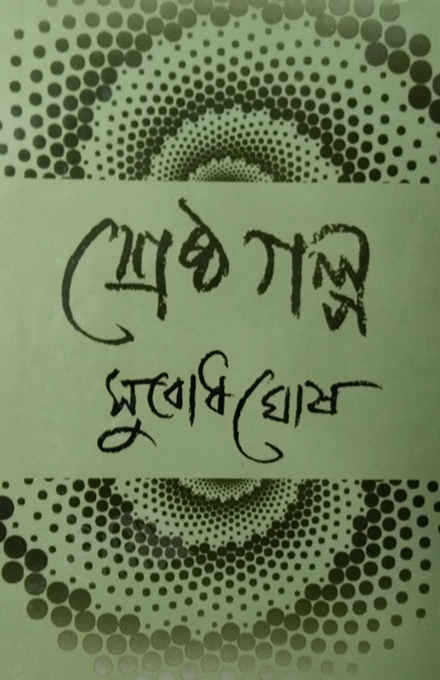 শ্রেষ্ঠ গল্প
সুবোধ ঘোষ